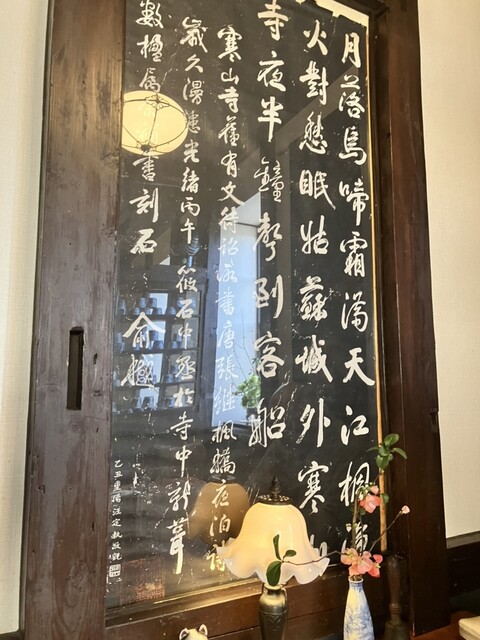 月落烏啼霜滿天江楓漁
火對愁眠姑蘇城外寒山
寺夜半鐘聲到客船
寒山寺舊有文待詔所書唐張繼楓橋夜泊詩
歲久漫漶光緒丙午筱石中丞於寺中新葺
數楹屬書刻石 俞樾
乙丑重陽